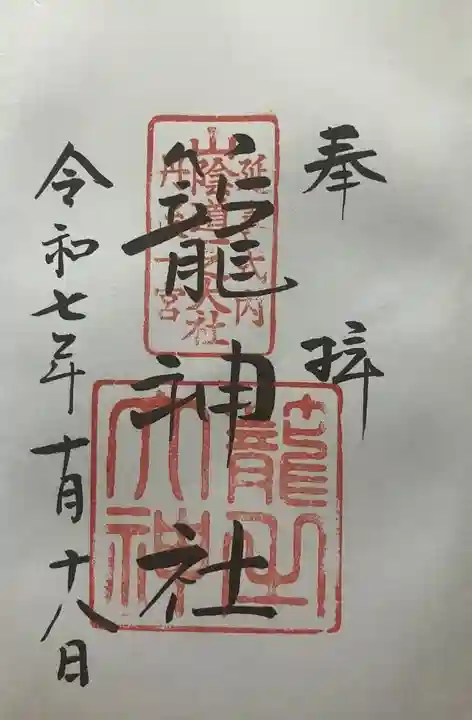 奉拝
籠神社
令和七年十月十八日
延喜式内
山陰道一大社
丹後一宮
籠之
大神